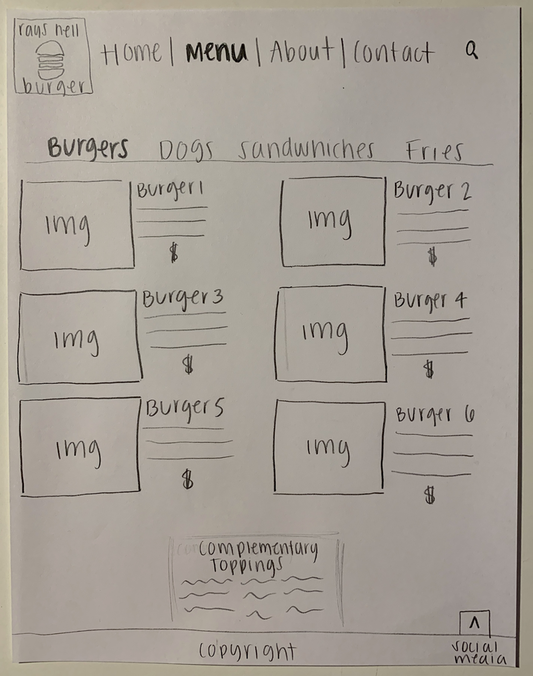 rays hell
burger
Home | Menu | About | Contact
Burgers Dogs sandwhiches Fries
img Burger 1 $
img Burger 2 $
img Burger 3 $
img Burger 4 $
img Burger 5 $
img Burger 6 $
complementary
Toppings
copyright
social
media